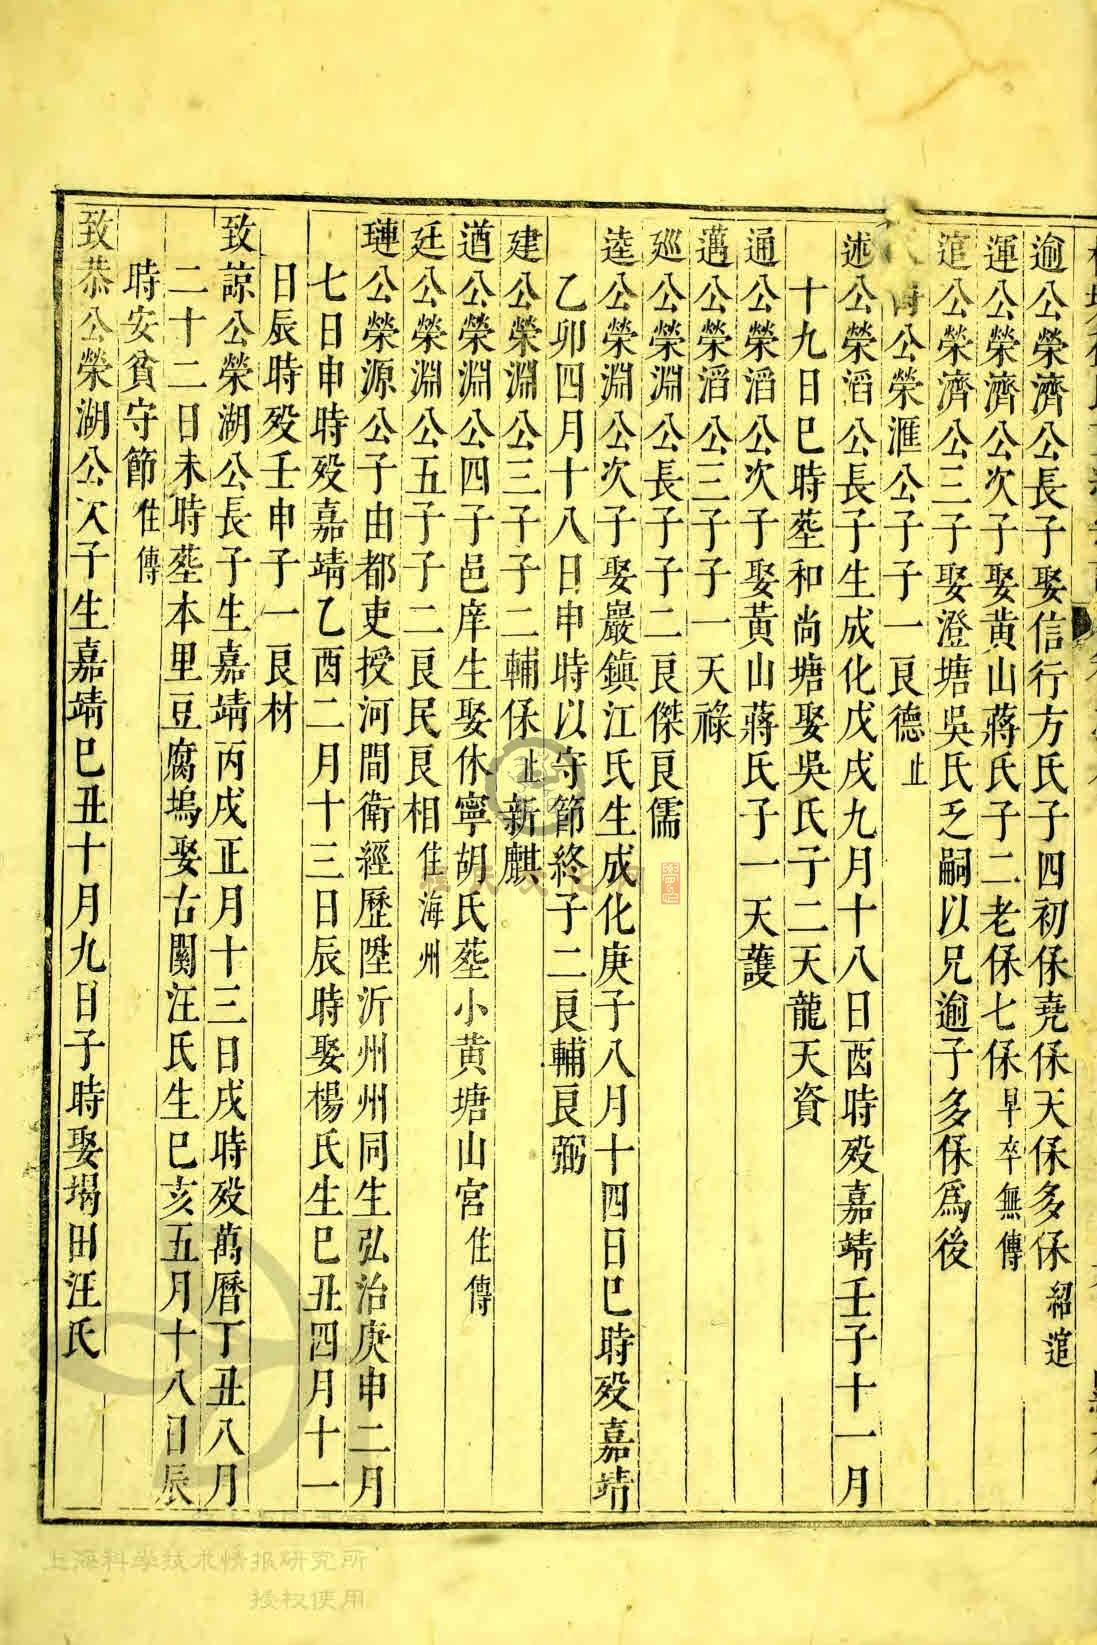 逾公榮濟公長子娶信行方氏子四初保堯保天保多保紹逭
運公榮濟公次子娶黃山蔣氏子二老保七保早卒無傳
逭公榮濟公三子娶澄塘吳氏乏嗣以兄逾子多保爲後
公榮滙公子子一良德止
述公榮滔公長子生成化戊戌九月十八日酉時歿嘉靖壬子十一月
十九日巳時塟和尚塘娶吳氏子二天龍天資
通公榮滔公次子娶黃山蔣氏子一天護
邁公榮滔公三子子一天祿
廵公榮淵公長子子二良傑良儒
逵公榮淵公次子娶巖鎮江氏生成化庚子八月十四日巳時歿嘉靖
乙卯四月十八日申時以守節終子二良輔良弼
建公榮淵公三子子二輔保止新麒
遒公榮淵公四子邑庠生娶休寧胡氏塟小黃塘山宮住傳
廷公榮淵公五子子二良民良相住海州
璉公榮源公子由都吏授河間衛經歷陞沂州州同生弘治庚申二月
七日申時歿嘉靖乙酉二月十三日辰時娶楊氏生巳丑四月十一
日辰時歿壬申子一良材
致諒公榮湖公長子生嘉靖丙戌正月十三日戌時歿萬曆丁丑八月
二十二日未時塟本里豆腐塢娶古關汪氏生巳亥五月十八日辰
時安貧守節住傳
致恭公榮湖公次子生嘉靖巳丑十月九日子時娶堨田汪氏
上海科學技术情报研究所
授权使用